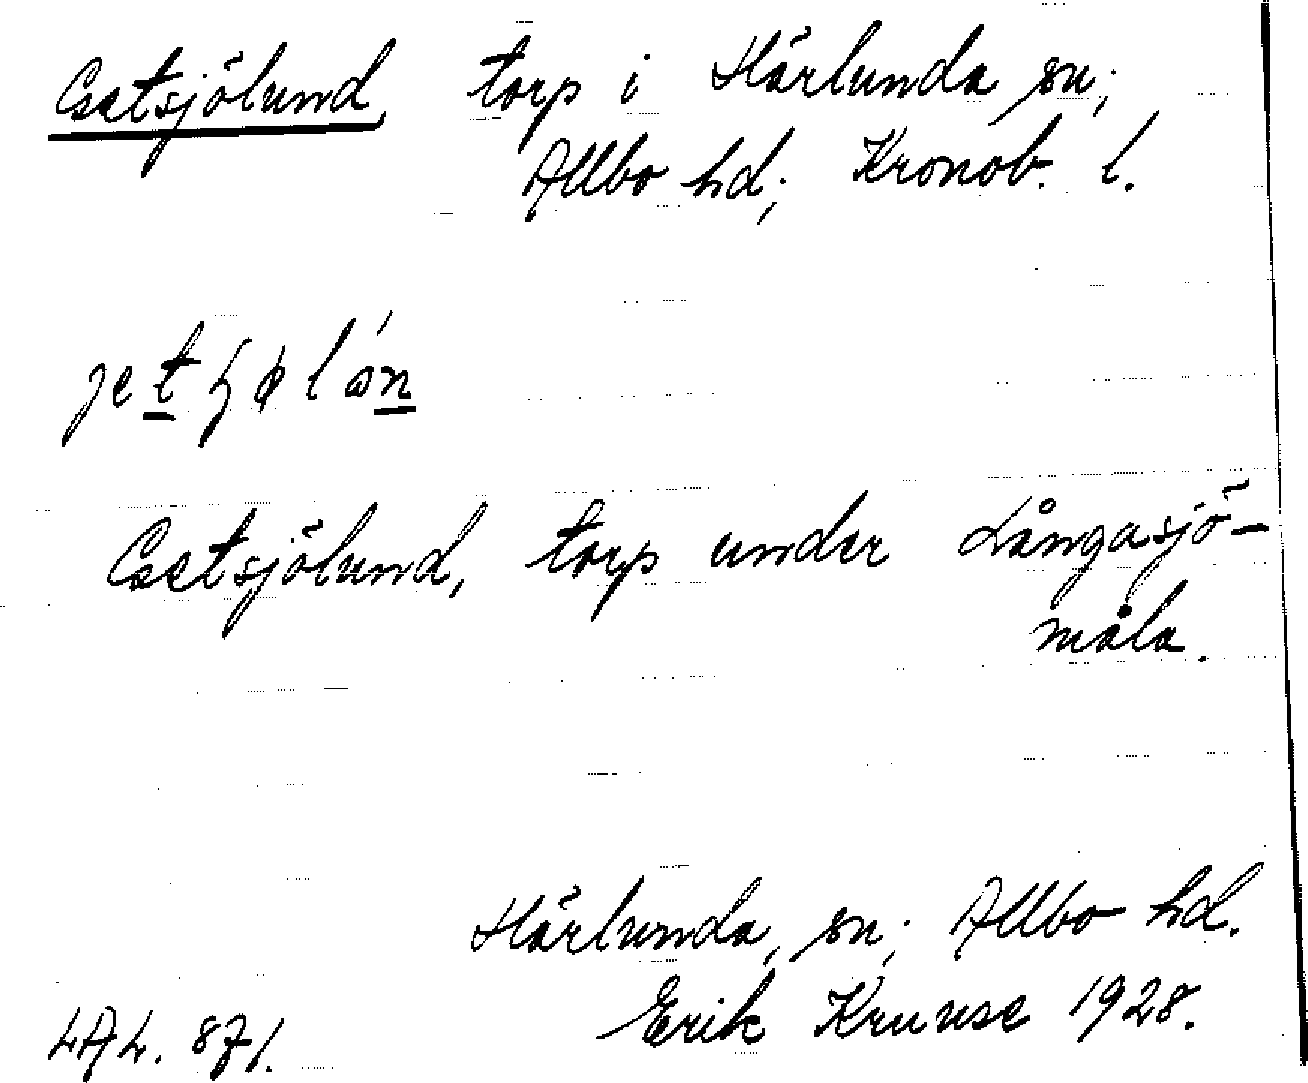 Getsjölund, torp i Härlunda sn;
Allbo hd; Kronob. l.
Getsjölund, torp under Långasjö-
måla.
Härlunda, sn; Allbo hd.
Erik Kruuse 1928.
LAL. 871.